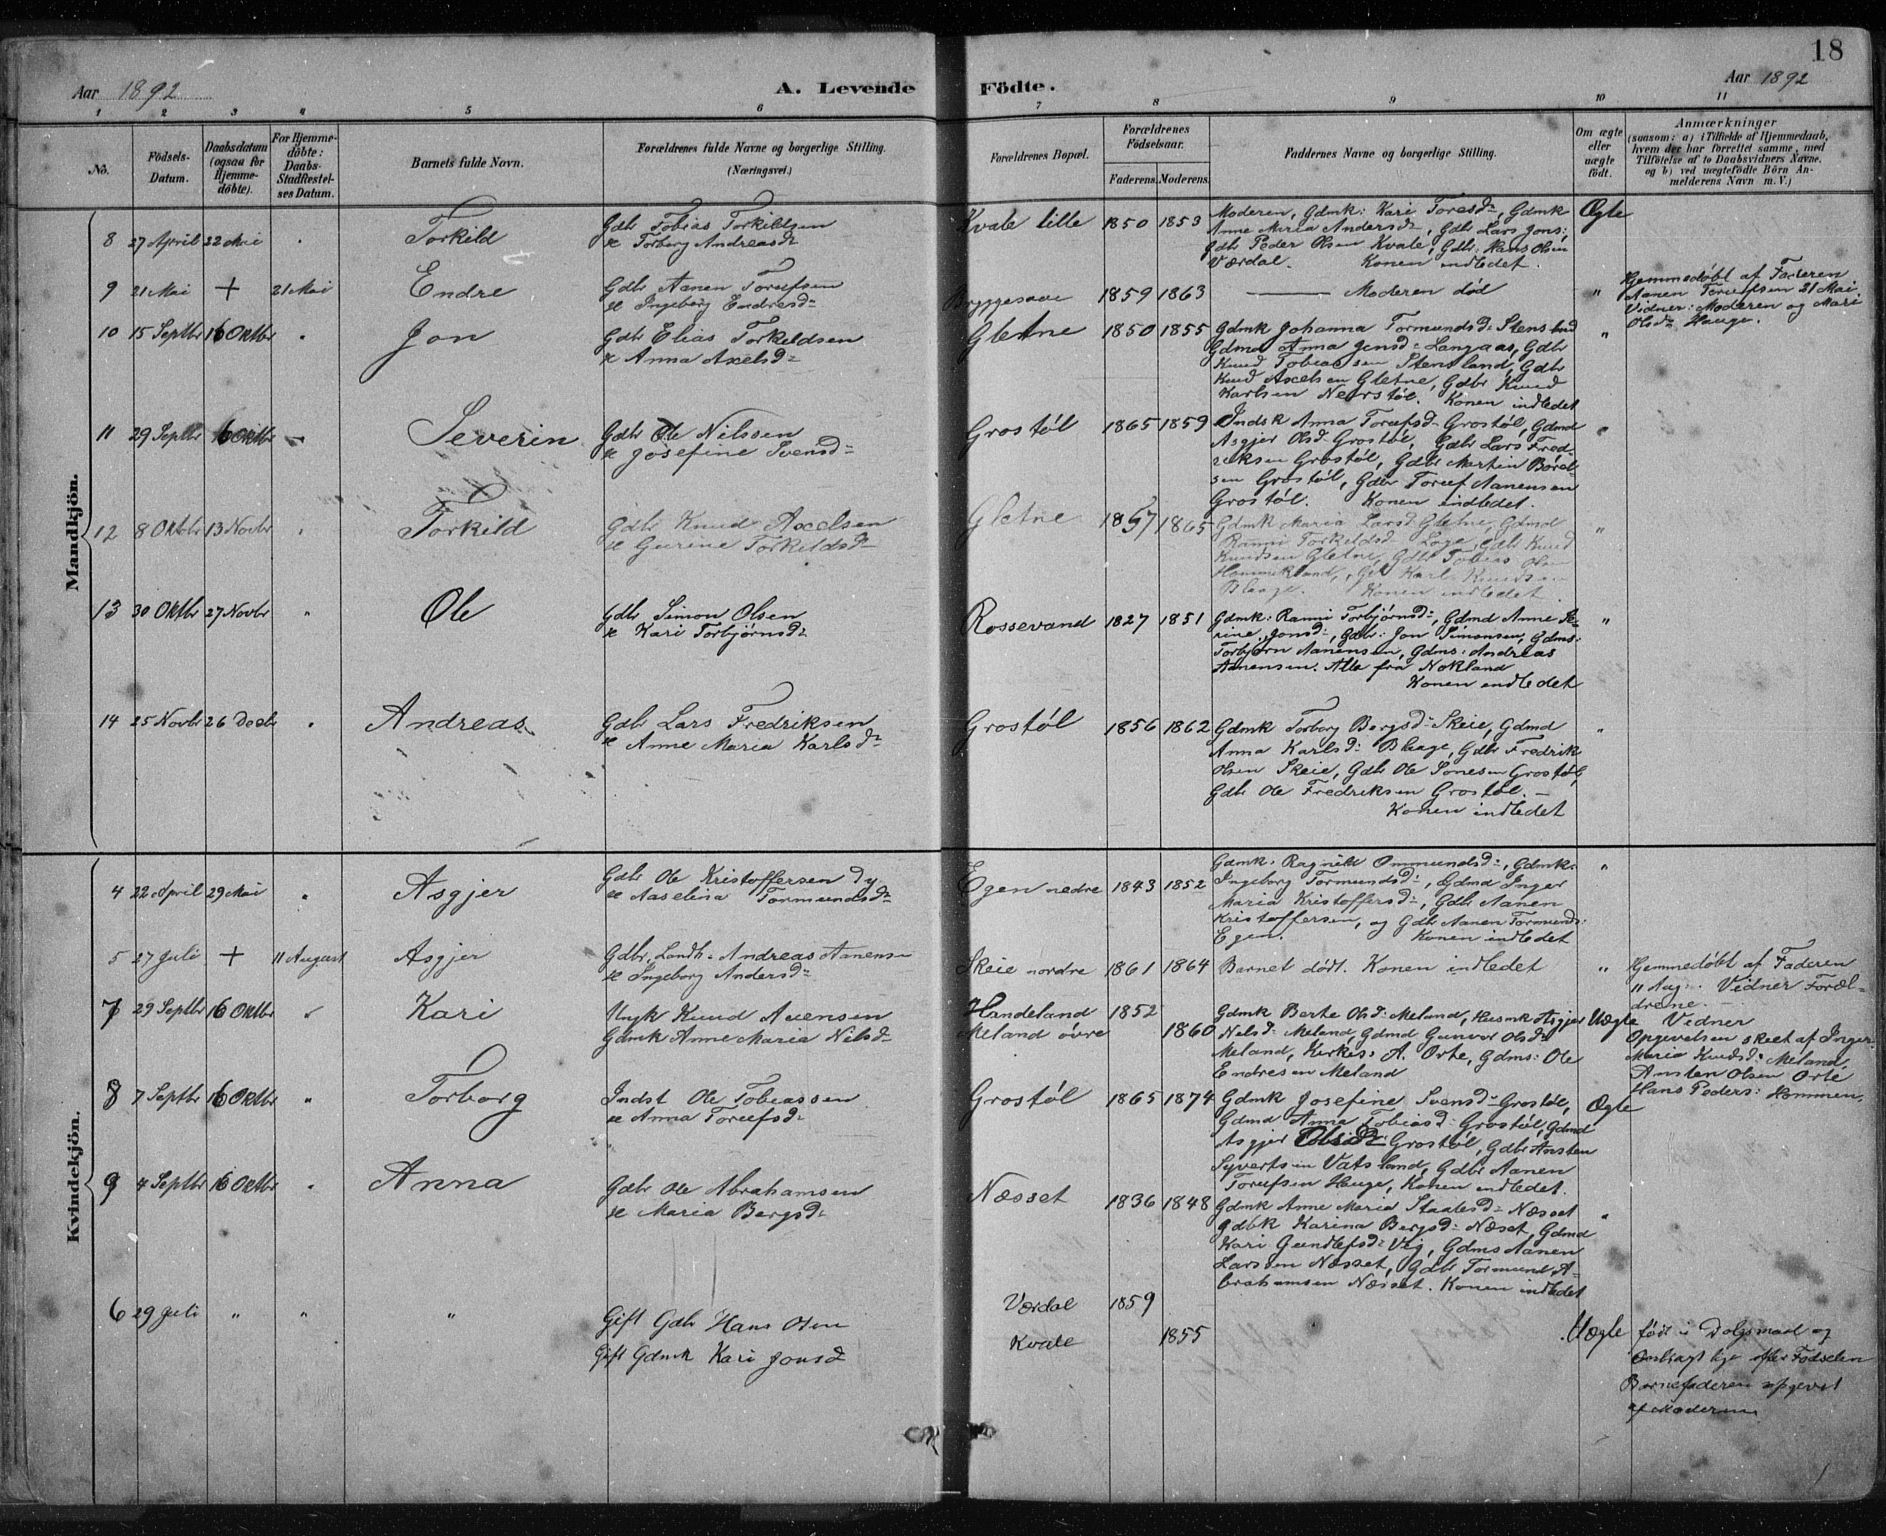 18
Aar 1892 A. Levende Födte. Aar 1892
1 2 3 4 5 6 7 8 9 10 11
No.
Födsels-
Datum.
Daabsdatum
(ogsaa for
Hjemme-
döbte).
For Hjemme-
döbte:
Daabs-
Stadfæstel-
ses Datum.
Barnets fulde Navn.
Forældrenes fulde Navne og borgerlige Stilling.
(Næringsvei.)
Forældrenes Bopæl.
Forældrenes
Födselsaar.
Faderens. Moderens.
Faddernes Navne og borgerlige Stilling.
Om ægte
eller
uægte
födt.
Anmærkninger
(saasom: a) i Tilfælde af Hjemmedaab,
hvem der har forrettet samme, med
Tilföielse af to Daabsvidners Navne,
og b) ved uægtefödte Börn An-
melderens Navn m. V.)
Mandkjön.
8 27 April 22 Mai " Torkild
Gdbr Tobias Torkildsen
& Torborg Andreasdr
Kvale lille 1850 1853
Moderen, Gdmk: Kari Toresdr, Gdmk
Anne Maria Andersdr, Gdbr Lars Jons:
Gdbr Peder Olsen Kvale, Gdbr: Hans Olsen
Værdal. Konen indledet.
Ægte
9 21 Mai + 21 Mai Endre
Gdbr Aanen Torufsen
& Ingeborg Endresdr
Bryggesaae 1859 1863 Moderen död "
Hjemmedøbt af Faderen
Aanen Torufsen 21 Mai
Vidner: Moderen og Mari
Olsdr Hauge.
10 15 Septbr 16 Oktbr " Jon
Gdbr Elias Torkildsen
& Anna Axelsdr
Gletne 1850 1855
Gdmk Johanna Tormundsdr Stensland
Gdmd Anna Jensdr Langaas, Gdbr
Knud Tobiassen Stensland, Gdbr
Knud Axelsen Gletne, Gdbr Knud
Karlsen Neerstøl. Konen indledet
"
11 29 Septbr 16 Oktbr " Severin
Gdbr Ole Nilssen
& Josefine Svensdr
Grostøl 1865 1859
Indsk Anna Torufsdr Grostøl, Gdmd
Asgjer Olsdr Grostøl, Gdbr Lars Fred-
riksen Grostøl, Gdbr Martin Børel-
sen Grostøl, Gdbr Toruf Aanensen
Grostøl. Konen indledet.
"
12 8 Oktbr 13 Novbr " Torkild
Gdbr Knud Axelsen
& Gurine Torkildsdr
Gletne 1857 1865
Gdmk Maria Larsdr Gletne, Gdmd
Ranni Torkildsdr Loge, Gdbr Knud
Knudsen Gletne, Gdbr Tobias Olsen
Hommekland, Gdb Karl Knudsen
Blaage. Konen indledet.
"
13 30 Oktbr 27 Novbr " Ole
Gdbr Simon Olsen
& Kari Torbjørnsdr
Rossevand 1827 1851
Gdmk: Ranni Torbjørnsdr, Gdmd Anne Se-
rine Jonsdr, Gdbr: Jon Simonsen, Gdms:
Torbjørn Aanensen, Gdms: Andreas
Aanensen. Alle fra Nokland
Konen indledet
"
14 25 Novbr 26 Decbr " Andreas
Gdbr Lars Fredriksen
& Anne Maria Karlsdr
Grostøl 1856 1862
Gdmk Torborg Bergsdr Skeie, Gdmd
Anna Karlsdr Blaage, Gdbr Fredrik
Olsen Skeie, Gdbr Ole Sønesen Grostøl,
Gdbr Ole Fredriksen Grostøl. —
Konen indledet
"
Kvindekjön.
4 22 April 29 Mai " Asgjer
Gdbr Ole Kristoffersen
& Aaselina Tormundsdr
Egen nedre 1843 1852
Gdmk. Ragnild Ommundsdr, Gdmk.
Ingeborg Tormundsdr, Gdmd Inger
Maria Kristoffersdr, Gdbr Aanen
Kristoffersen, og Gdbr Aanen Tormunds:
Egen. Konen indledet
"
5 27 Juli + 11 August Asgjer
Gdbr, Landh. Andreas Aanensen
& Ingeborg Andersdr
Skeie nordre 1861 1864 Barnet dödt. Konen indledet "
Hjemmedøbt af Faderen
11 Aug. Vidner Foræl-
drene. —
7 29 Septbr 16 Oktbr " Kari
Ungk Knud Auensen
Gdmk Anne Maria Nilsdr
Handeland 1852
Meland övre 1860
Gdmk Berte Olsdr Meland, Husmk Asgjer
Nilsdr Meland, Gdmd Gunvor Olsdr
Meland, Kirkes: A. Orte, Gdms: Ole
Endresen Meland
Uægte
Vidner
Opgivelsen skeet af Inger
Maria Knudsdr Meland,
Ansten Olsen Orte
Hans Peders: Hommen.
8 7 Septbr 16 Oktbr " Torborg
Indst Ole Tobiassen
& Anna Torufsdr
Grostøl 1865 1874
Gdmk Josefine Svensdr Grostøl,
Gdmd Anna Tobiasdr Grostøl, Gdmd
Asgjer Olsdr Grostøl, Gdbr Ansten
Syvertsen Vatsland, Gdbr Aanen
Torufsen Hauge, Konen indledet.
Ægte
9 4 Septbr 16 Oktbr " Anna
Gdbr Ole Abrahamsen
& Maria Bergsdr
Næsset 1836 1848
Gdmk Anne Maria Staalesdr Næsset
Gdbk Karina Bergsdr Næset, Gdmd
Kari Gundlefsdr Vig, Gdms Aanen
Larsen Næsset, Gdbr Tormund A-
brahamsen Næsset. Konen indledet
"
6 29 Juli " " "
Gift Gdbr Hans Olsen
Gift Gdmk Kari Jonsd
Værdal 1859
Kvale 1855
Uægte
født i Dolgsmaal og
Ombragt lige efter Fødselen
Barnefaderen opgivet
af Moderen